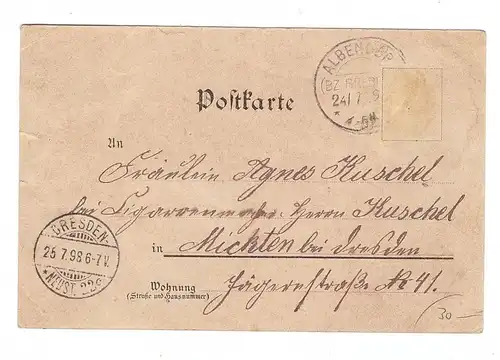 ALBENDORF
(BZ. BRESL
24/7 9
* 4-5N.
Postkarte
An
Fräulein Agnes Kuschel
bei Cigarrenmacher Herrn Kuschel
in Mickten bei Dresden
Wohnung
(Straße und Hausnummer)
Jägerstraße No 41.
DRESDEN-
25 7.98 6-7V.
*NEUST. 22c
30 –